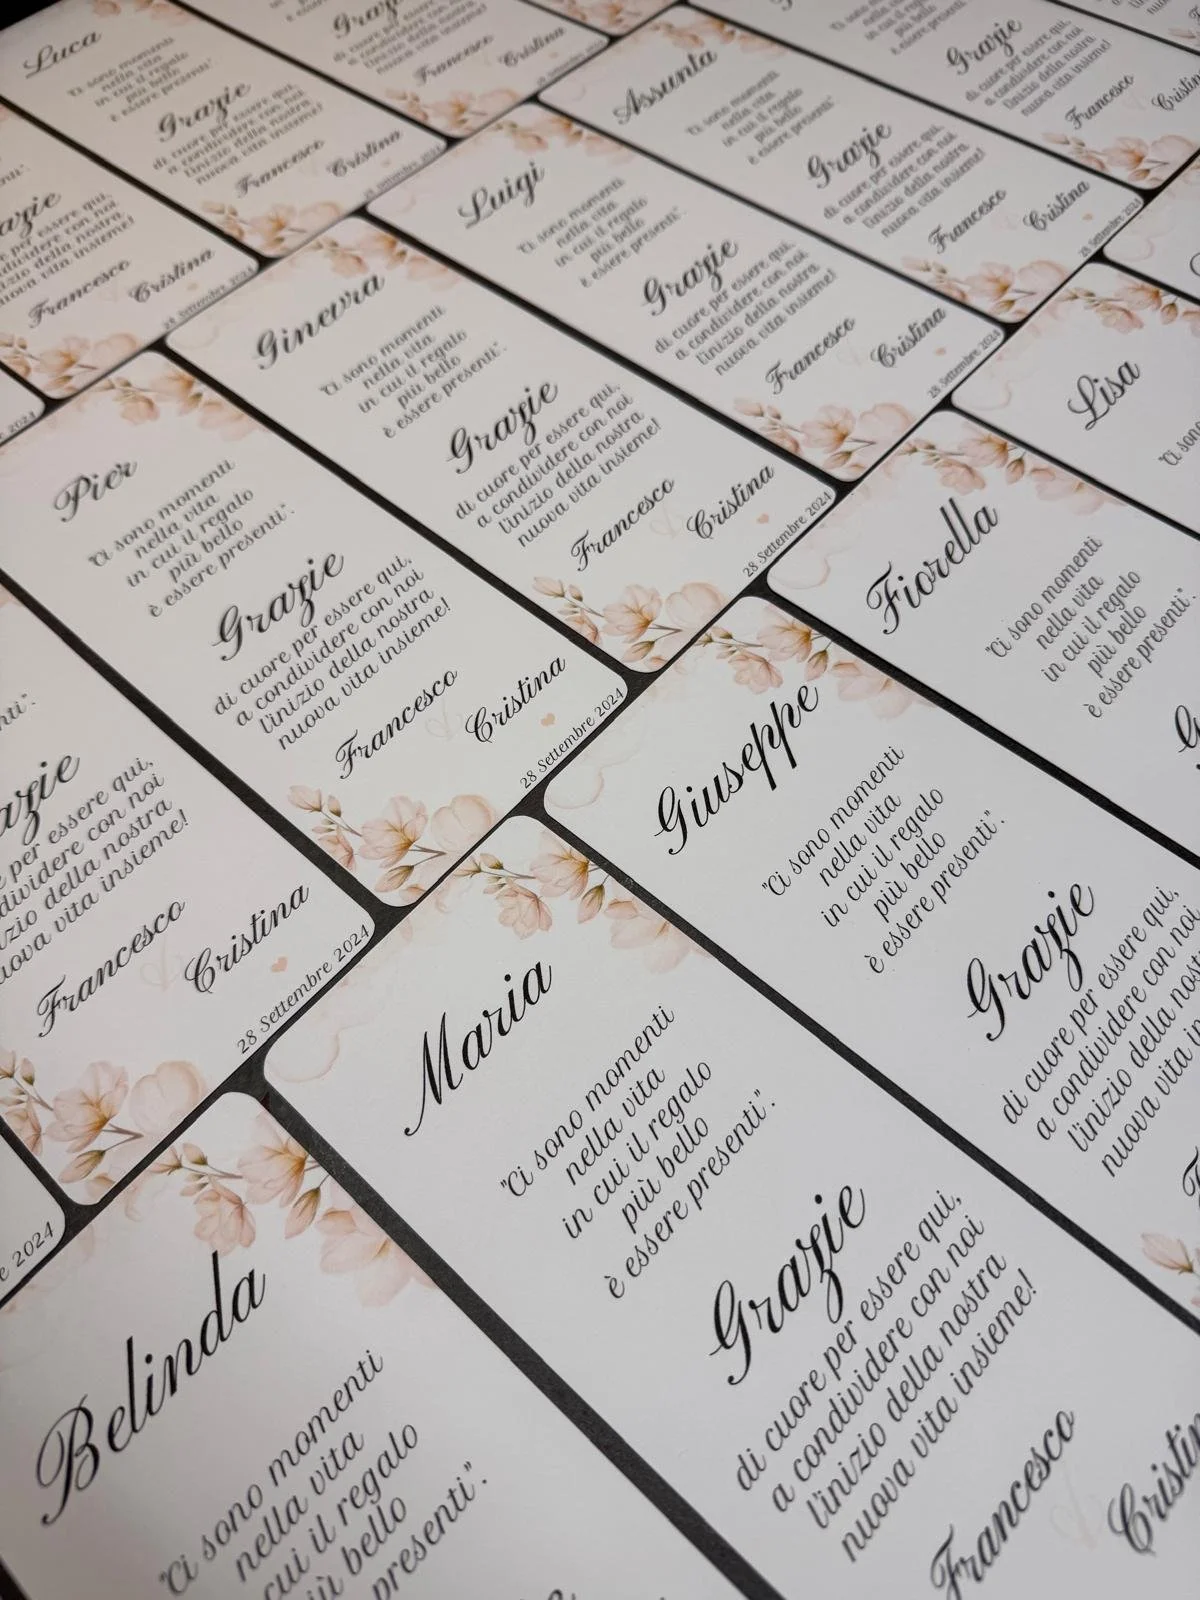 Luca
"Ci sono momenti
nella vita
in cui il regalo
più bello
è essere presenti".
Grazie
di cuore per essere qui,
a condividere con noi
l'inizio della nostra
nuova vita insieme!
Francesco Cristina
28 Settembre 2024
Grazie
di cuore per essere qui,
a condividere con noi
l'inizio della nostra
nuova vita insieme!
Francesco Cristina
Assunta
"Ci sono momenti
nella vita
in cui il regalo
più bello
è essere presenti".
Grazie
di cuore per essere qui,
a condividere con noi
l'inizio della nostra
nuova vita insieme!
Francesco Cristina
28 Settembre 2024
Grazie
di cuore per essere qui,
a condividere con noi
l'inizio della nostra
nuova vita insieme!
Francesco Cristina
Luigi
"Ci sono momenti
nella vita
in cui il regalo
più bello
è essere presenti".
Grazie
di cuore per essere qui,
a condividere con noi
l'inizio della nostra
nuova vita insieme!
Francesco Cristina
28 Settembre 2024
Francesco Cristina
28 Settembre 2024
Ginevra
"Ci sono momenti
nella vita
in cui il regalo
più bello
è essere presenti".
Grazie
di cuore per essere qui,
a condividere con noi
l'inizio della nostra
nuova vita insieme!
Francesco Cristina
28 Settembre 2024
Lisa
"Ci sono
Pier
"Ci sono momenti
nella vita
in cui il regalo
più bello
è essere presenti".
Grazie
di cuore per essere qui,
a condividere con noi
l'inizio della nostra
nuova vita insieme!
Francesco Cristina
28 Settembre 2024
Fiorella
"Ci sono momenti
nella vita
in cui il regalo
più bello
è essere presenti".
per essere qui,
condividere con noi
della nostra
nuova vita insieme!
Francesco Cristina
28 Settembre 2024
Giuseppe
"Ci sono momenti
nella vita
in cui il regalo
più bello
è essere presenti".
Grazie
di cuore per essere qui,
a condividere con noi
l'inizio della nostra
nuova vita
Maria
"Ci sono momenti
nella vita
in cui il regalo
più bello
è essere presenti".
Grazie
di cuore per essere qui,
a condividere con noi
l'inizio della nostra
nuova vita insieme!
Francesco
2024
Belinda
"Ci sono momenti
nella vita
cui il regalo
più bello
presenti".